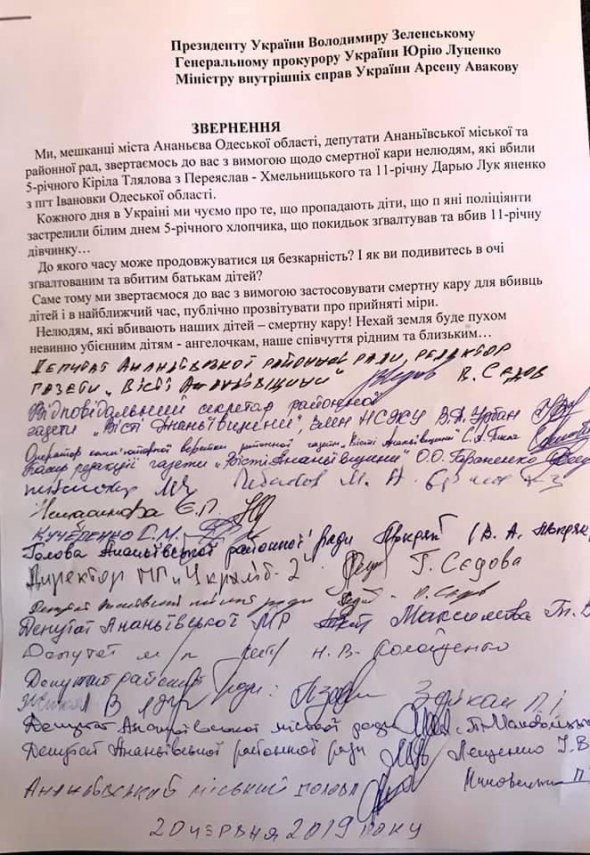 Президенту України Володимиру Зеленському
Генеральному прокурору України Юрію Луценко
Міністру внутрішніх справ України Арсену Авакову
ЗВЕРНЕННЯ
Ми, мешканці міста Ананьєва Одеської області, депутати Ананьївської міської та
районної рад, звертаємось до вас з вимогою щодо смертної кари нелюдям, які вбили
5-річного Кіріла Тлялова з Переяслав - Хмельницького та 11-річну Дарью Лук яненко
з пгт Івановки Одеської області.
Кожного дня в Україні ми чуємо про те, що пропадають діти, що п яні поліціянти
застрелили білим днем 5-річного хлопчика, що покидьок зґвалтував та вбив 11-річну
дівчинку…
До якого часу може продовжуватися ця безкарність? І як ви подивитесь в очі
зґвалтованим та вбитим батькам дітей?
Саме тому ми звертаємося до вас з вимогою застосовувати смертну кару для вбивць
дітей і в найближчий час, публічно прозвітувати про прийняті міри.
Нелюдям, які вбивають наших дітей – смертну кару! Нехай земля буде пухом
невинно убієнним дітям - ангелочкам, наше співчуття рідним та близьким…
Депутат Ананьївської районної ради, редактор
газети „Вісті Ананьївщини" В. Сєдов
Відповідальний секретар районної
газети „Вісті Ананьївщини", член НСЖУ В.А. Урбан
Оператор комп'ютерної верстки районної газети „Вісті Ананьївщини"
касир редакції газети „Вісті Ананьївщини" О.О. Гараненко
М. А.
Є.П.
Кучеренко С.М.
Голова Ананьївської районної ради
Директор МП „Укрліб-2" Г. Сєдова
Депутат ради
Депутат Ананьївської МР Максимова Т. В
Депутат м/р Н. В.
Депутат районної ради:
Депутат Ананьївської міської ради
Депутат Ананьївської районної ради Лещенко І. В
Ананьївський міський голова
20 червня 2019 року